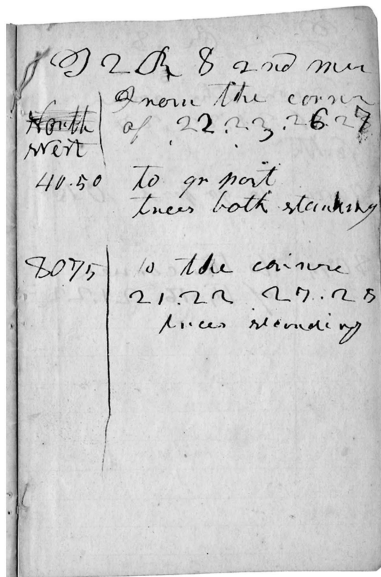 T 2 R 8 2nd mer
From the corner
North of 22.23.26.27
West
40.50 to qr post
trees both standing
8075 to the cornre
21.22 27.28
trees standing